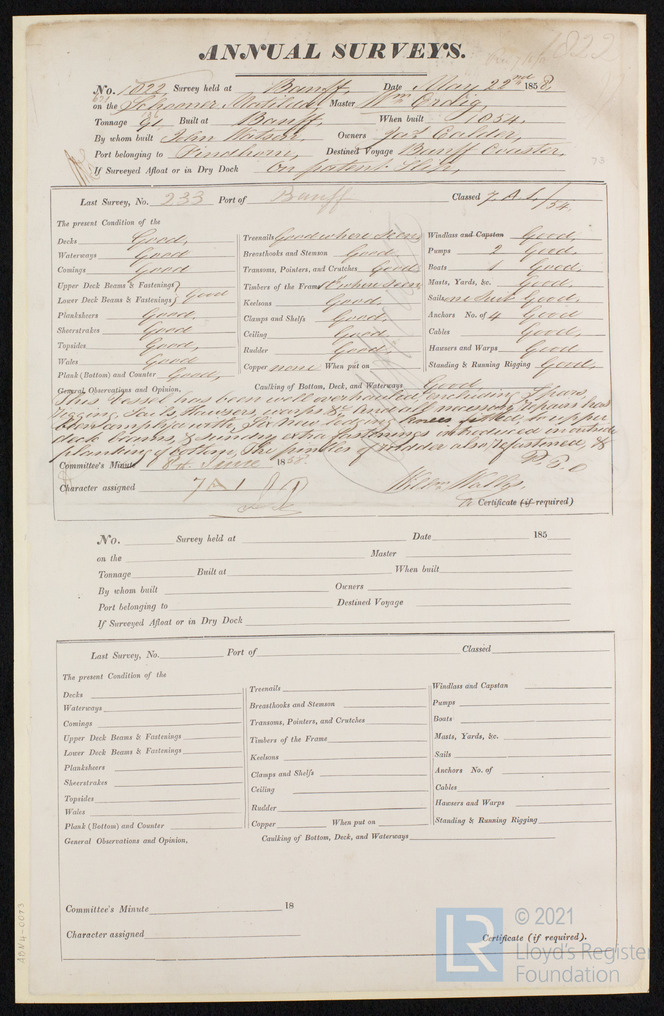 1822
ANNUAL SURVEYS.
No. 1822 Survey held at Banff, Date May 22nd 1858,
on the Schooner Matilda, Master Wm Craig,
Tonnage Built at Banff, When built 1854,
By whom built John Watson, Owners Jas Calder,
Port belonging to Findhorn, Destined Voyage Banff Coaster,
If Surveyed Afloat or in Dry Dock On patent Slip,
73
Last Survey, No. 233 Port of Banff Classed 7 A 1 /54
The present Condition of the
Decks Good,
Waterways Good
Comings Good
Upper Deck Beams & Fastenings
Lower Deck Beams & Fastenings Good
Planksheers Good,
Sheerstrakes Good
Topsides Good,
Wales Good
Plank (Bottom) and Counter Good,
Treenails Good where Seen
Breasthooks and Stemson Good
Transoms, Pointers, and Crutches Good
Timbers of the Frame where seen
Keelsons Good,
Clamps and Shelfs Good,
Ceiling Good
Rudder Good,
Copper none When put on
Windlass and Capstan Good,
Pumps 2 Good,
Boats 1 Good,
Masts, Yards, &c. Good,
Sails one Suit Good
Anchors No. of 4 Good
Cables Good
Hawsers and Warps Good
Standing & Running Rigging Good,
General Observations and Opinion. Caulking of Bottom, Deck, and Waterways Good
This Vessel has been well overhauled, including Spars,
Rigging, Sails, Hawsers, warps &c and all necessary repairs has
been complyd with, Six new lodging knees fitted, to upper
deck beams, & sundry extra fastenings introduced in outside
planking of bottom, The pintles of rudder also refastened, &c
P.T.O
Committee's Minute 8th June 1858
Character assigned 7 A 1
Certificate (if required)
No. Survey held at Date 185
on the Master
Tonnage Built at When built
By whom built Owners
Port belonging to Destined Voyage
If Surveyed Afloat or in Dry Dock
Last Survey, No. Port of Classed
The present Condition of the
Decks
Waterways
Comings
Upper Deck Beams & Fastenings
Lower Deck Beams & Fastenings
Planksheers
Sheerstrakes
Topsides
Wales
Plank (Bottom) and Counter
Treenails
Breasthooks and Stemson
Transoms, Pointers, and Crutches
Timbers of the Frame
Keelsons
Clamps and Shelfs
Ceiling
Rudder
Copper When put on
Windlass and Capstan
Pumps
Boats
Masts, Yards, &c.
Sails
Anchors No. of
Cables
Hawsers and Warps
Standing & Running Rigging
General Observations and Opinion. Caulking of Bottom, Deck, and Waterways
Committee's Minute 18
Character assigned
Certificate (if required).
ADN4-0073
LR © 2021
Lloyd's Register
Foundation